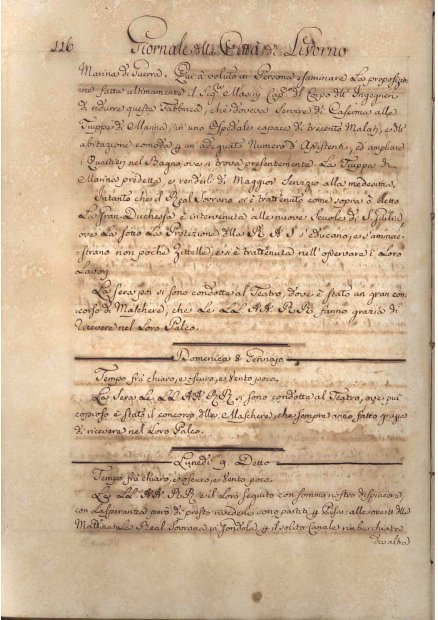 116 Giornale della Città di Livorno
Marina di Guerra. Qui à voluto in Persona esaminare La proposizio
ne fatta ultimamente il Sigr. Masij Capno. del Corpo degl' Ingegneri
di ridurre questa Fabbrica, che doveva Servire di Caserma alle
Truppe di Marina, in uno Ospedale capace di trecento Malati, e dell'
abitazione comoda ad un' adequato Numero d'Assistenti, ed ampliare
i Quartieri nel Bagno ove si trova presentemente La Truppa di
Marina predetta, e renderli di Maggior Servizio alla medesima.
Intanto che il Real Sovrano si è trattenuto come sopra è detto
La Gran-Duchessa è intervenuta alle nuove Scuole di S.
ove La sotto La Protezione della R. A. S. s'educano, e s'ammae-
strano non poche Zittelle, e si è trattenuta nell'osservare i Loro
Lavori
La Sera poi si sono condotte al Teatro, dove è stato un gran con
corso di Maschere, che Le LL. AA. RR. fanno grazia di
ricevere nel Loro Palco.
Domenica 8 Gennajo
Tempo frà chiaro, e oscuro, e Vento poco.
La Sera Le LL. AA. RR. si sono condotte al Teatro, ove più
copioso è stato il concorso delle Maschere, che sempre anno, fatto grazia
di ricevere nel Loro Palco.
Lunedì 9 Detto
Tempo frà chiaro, e oscuro, e Vento poco.
Le LL. AA. RR. e il Loro Seguito con sommo nostro dispiacere,
con La speranza però di presto rivederle sono partiti per Pisa: alle ore sette della
Mattina La Real Sovrana in Gondola per il solito Canale rimburchiata
da altra